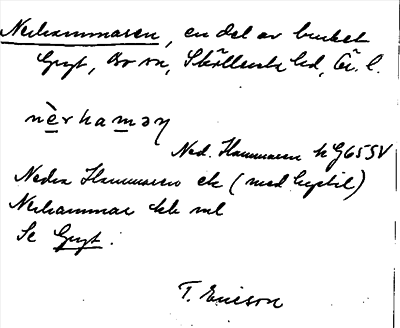 Nerhammaren, en del av bruket
Gryt, Bo sn, Sköllersta hd, Ör. l.
nèrhamaɳ
Ned. Hammaren h G65SV
Nedra Hammaren ek (med hyttil)
Nerhammar kb ml
Se Gryt.
T. Ericson